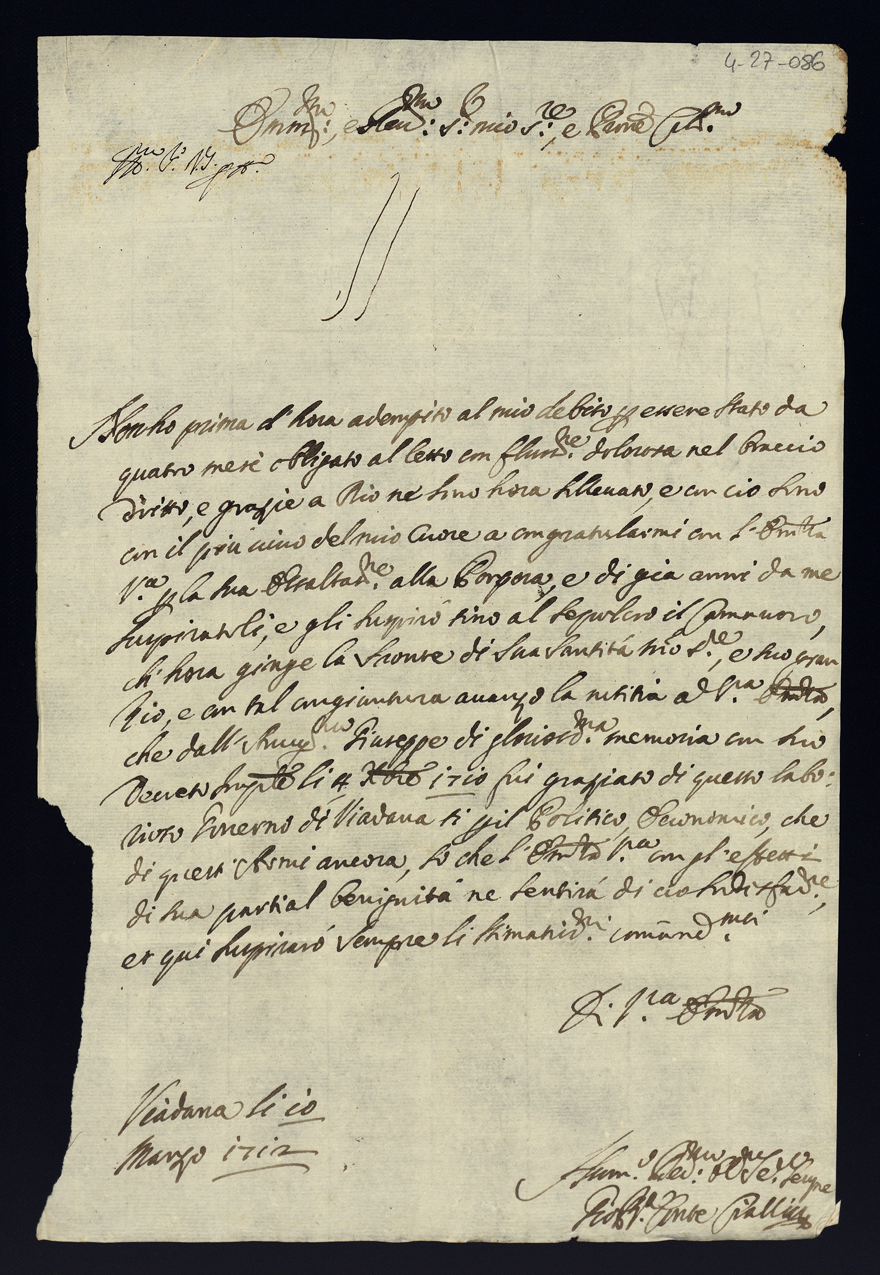 4-27-086
Em.mo, e Rev.mo S.r mio S.re, e Prone Col.mo
Non ho prima d'hora adempito al mio debito p essere stato da
quatro mesi obligato al letto con flussne dolorosa nel braccio
dritto, e grazie a Dio ne sono hora sollevato, e con cio sono
con il più vivo del mio Cuore a congratularmi con l'Em.za
V.ra p la sua Esaltaz.ne alla Porpora, e di già anni da me
suspiratoli, e gli suspirò sino al sepolcro il
ch'hora cinge la fronte di Sua Santità mio S.re, e suo gran
Zio, e con tal congiuntura avanzo la notitia a V.ra Em.za,
che dall' Giuseppe di glorios.ma memoria con suo
Decreto li 4 Xbre 1710 fui graziato di questo labo:
rioso Governo di Viadana si p il Politico, Economico, che
di quest'Armi ancora, so che l'Em.za V.ra con gl'effetti
di sua partial benignità ne sentirà di cio sodisfaz.ne,
et qui suspirarò sempre li stimatis.mi comand.mti
Di V.ra Em.za
Viadana li 10
Marzo 1712
Hum.o Dev.mo Obl.mo Se.re sempre
Gio B.a Conte